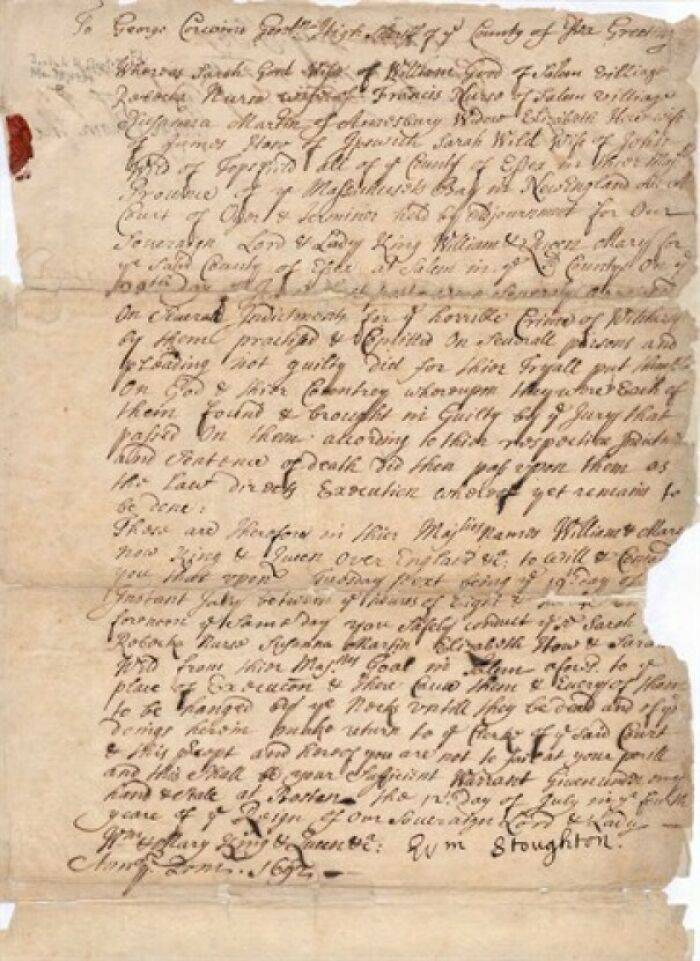 To George Corwine Gentm High Sheriff of ye County of Essex Greeting
Whereas Sarah Good Wife of William Good of Salem Village
Rebecka Nurse wife of Francis Nurse of Salem Village
Susanna Martin of Amesbury Widow Elizabeth How wife
of James How of Ipswich Sarah Wild Wife of John
Wild of Topsfield all of ye County of Essex in thier Majts
Province of ye Massachusets Bay in New England
Court of Oyer & Terminer held by adjournment for Our
Soveraign Lord & Lady King William & Queen Mary for
ye said County of Essex at Salem in ye sd County on ye
day of
On Severall Indictments for ye horrible Crime of Witchcraft
by them practised & Comitted On Severall persons and
pleading not guilty did for thier Tryall put themselves
On God & thier Countrey whereupon they were Each of
them found & brought in Guilty by ye Jury that
passed On them according to thier respective Indictments
and Sentence of death did then pass upon them as
the Law directs Execution whereof yet remains to
be done:
These are Therefore in thier Majties names William & Mary
now King & Queen over England &c: to will & Comand
you that upon Tuesday next being ye 19th day of
Instant July between ye houres of Eight &
forenoon ye same day you safely conduct ye sd Sarah
Rebecka Nurse Susanna Martin Elizabeth How & Sarah
Wild from thier Majties Goal in Salem aforesd to ye
place of Execution & There Cause them & Every of them
to be hanged by ye Necks untill they be dead and of yr
doings herein make return to ye Clerke of ye said Court
& this precpt and hereof you are not to fail at your perill
and this Shall be your Sufficient Warrant Given under my
hand & seale at Boston the 12th day of July in ye fourth
yeare of ye Reign of Our Soveraign Lord & Lady
Wm & Mary King & Queen &c: Wm Stoughton
Annoq Dom. 1692